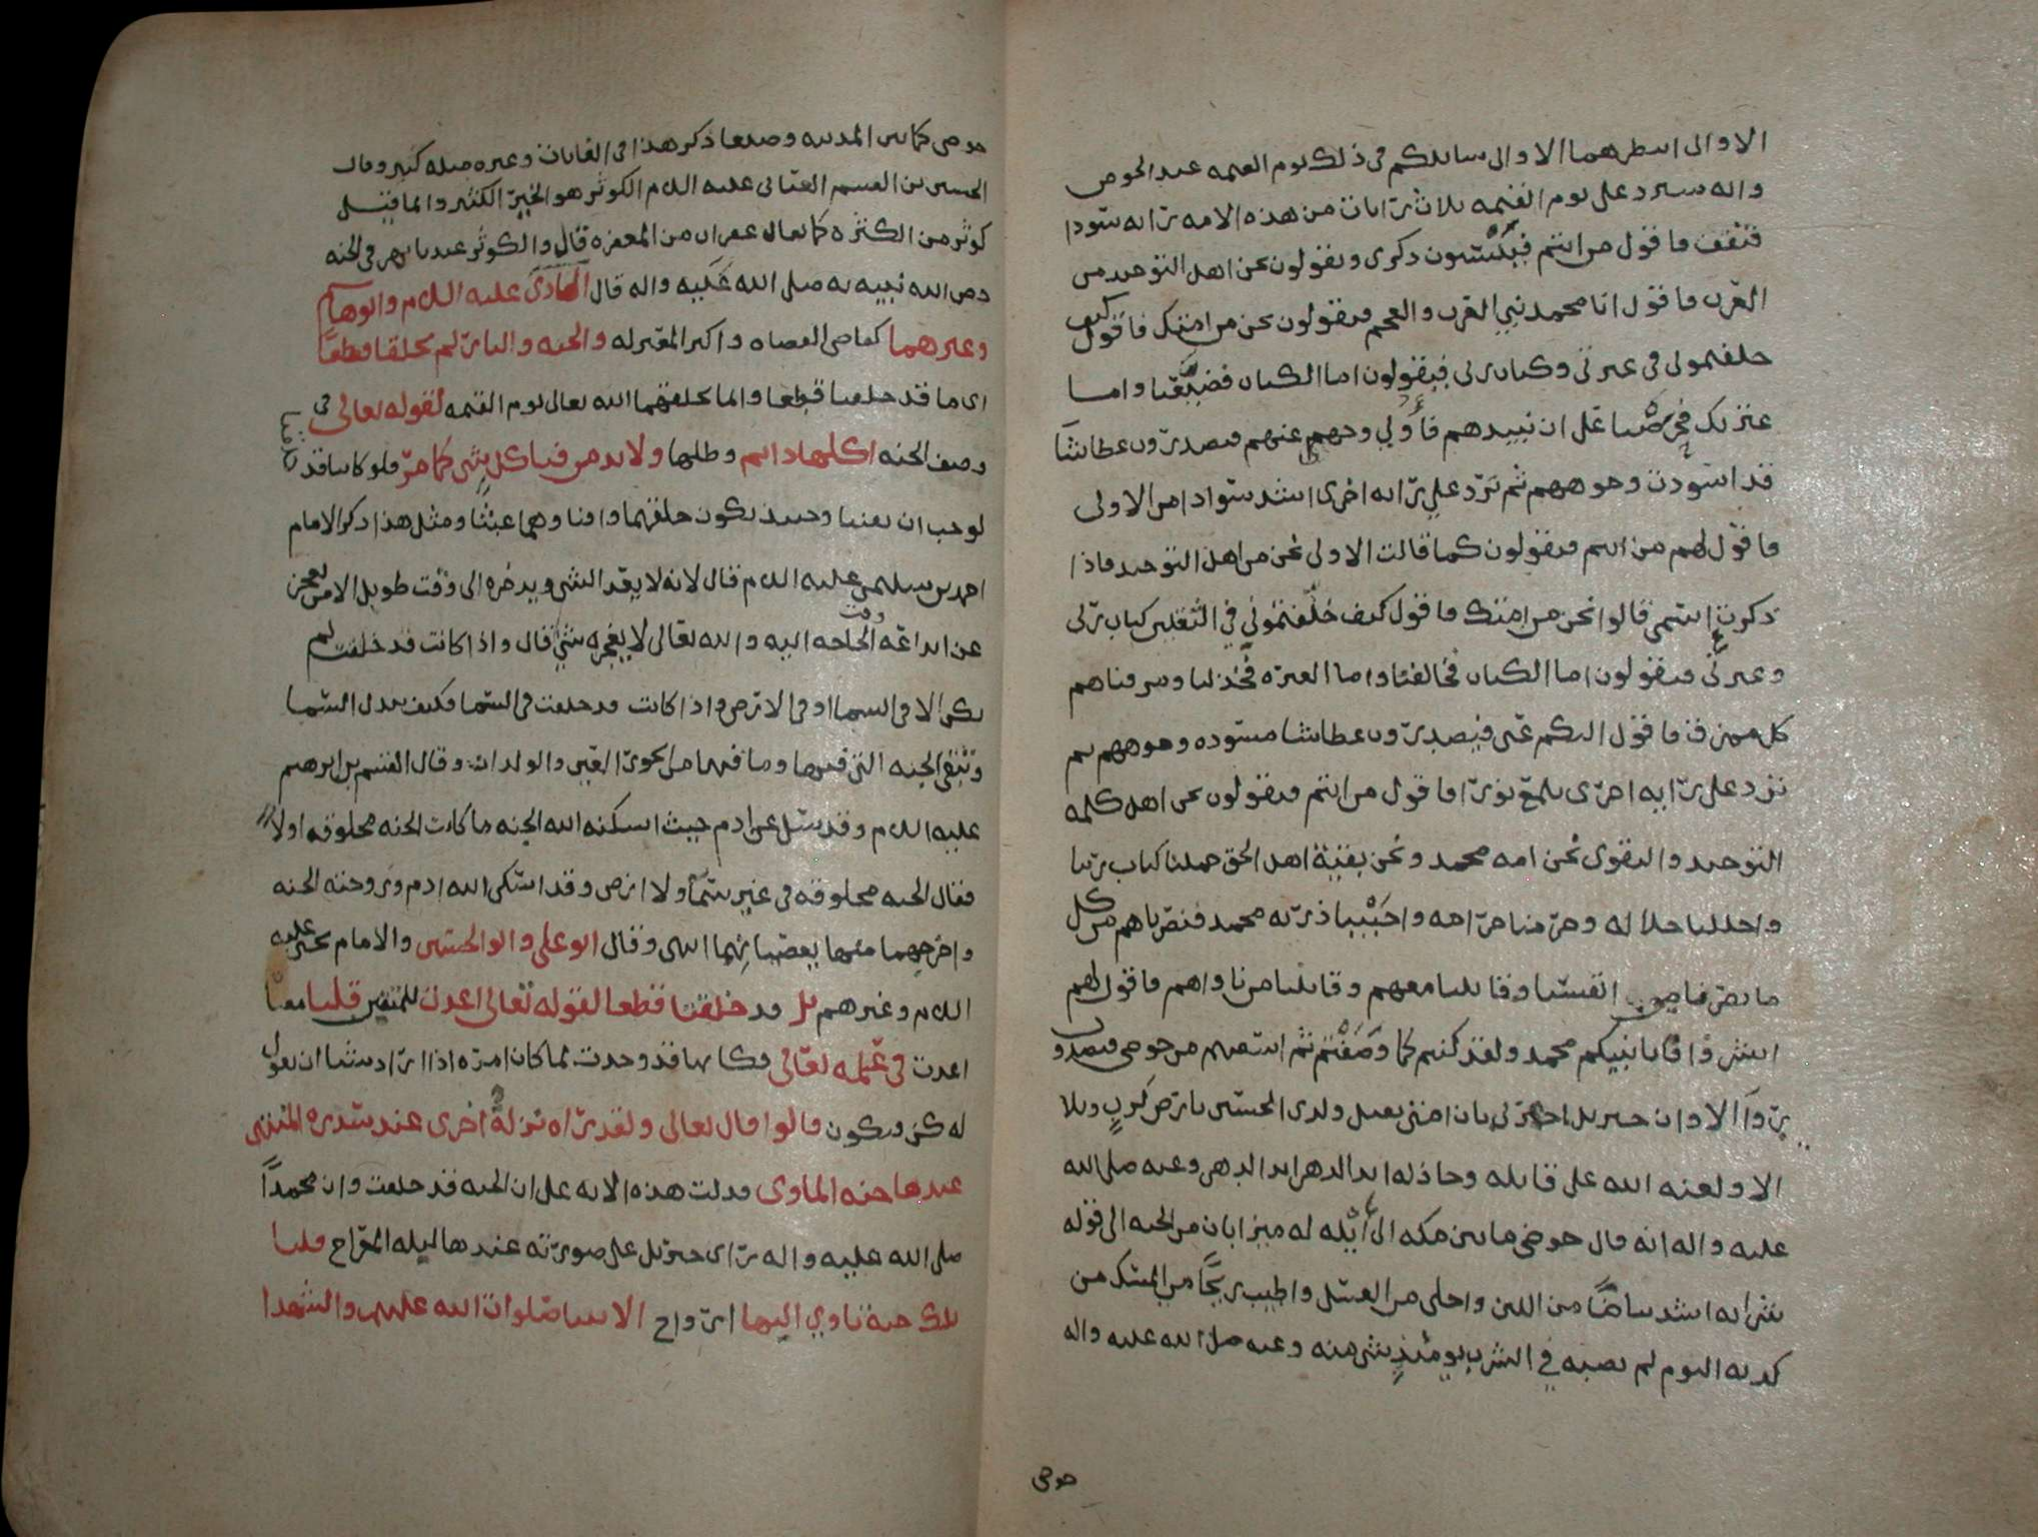 الا واني انتظرهما الا واني سائلكم في ذلك يوم القيمه عند الحوض
وانه سيرد علي يوم القيمه ثلاث رايات من هذه الامه رايه سودا
فتقف فاقول من انتم فينسون ذكري ويقولون نحن اهل التوحيد من
العرب فاقول انا محمد نبي العرب والعجم فيقولون نحن من امتك فاقول كيف
خلفتموني في عترتي وكتاب ربي فيقولون اما الكتاب فضيعنا واما
عترتك فحرصنا على ان نبيدهم فاولي وجهي عنهم فيصدرون عطاشا
قد اسودت وجوههم ثم ترد علي رايه اخرى اشد سوادا من الاولى
فاقول لهم من انتم فيقولون كما قالت الاولى نحن من اهل التوحيد فاذا
ذكرت اسمي قالوا نحن من امتك فاقول كيف خلفتموني في الثقلين كتاب ربي
وعترتي فيقولون اما الكتاب فخالفنا واما العتره فخذلنا ومزقناهم
كل ممزق فاقول اليكم عني فيصدرون عطاشا مسوده وجوههم ثم
ترد علي رايه اخرى تلمع نورا فاقول من انتم فيقولون نحن اهل كلمه
التوحيد والتقوى نحن امه محمد ونحن بقية اهل الحق حملنا كتاب ربنا
واحللنا حلاله وحرمنا حرامه واحببنا ذريه محمد فنصرناهم من كل
ما نصرنا به انفسنا وقاتلنا معهم وقاتلنا من ناواهم فاقول لهم
ابشروا فانا نبيكم محمد ولقد كنتم كما وصفتم ثم اسقيهم من حوضي فيصدرون
روآ الا وان جبريل اخبرني بان امتي تقتل ولدي الحسين بارض كرب وبلا
الا ولعنه الله على قاتله وخاذله ابد الدهر ابد الدهر وعنه صلى الله
عليه واله انه قال حوضي ما بين مكه الى ايله له ميزابان من الجنه الى قوله
شرابه اشد بياضا من اللبن واحلى من العسل واطيب ريحا من المسك من
كذب به اليوم لم يصبه في الشرب يومئذ شي منه وعنه صلى الله عليه واله
حوضي
حوضي كما بين المدينه وصنعا ذكر هذا في وغيره مثله كثير وقال
الحسين بن القسم العياني عليه السلم الكوثر هو الخير الكثير وانما قيل
كوثر من الكثره كما يقال غفران من المغفره قال والكوثر عندنا نهر في الجنه
خص الله نبييه به صلى الله عليه واله قال الهادي عليه السلم وابو هاشم
وغيرهما كقاضي القضاه واكثر المعتزله والجنه والنار لم يخلقا قطعا
اي ما قد خلقتا قطعا وانما يخلقهما الله تعالى يوم القيمه لقوله تعالى في
وصف الجنه اكلها دائم وظلها ولا بد من فنا كل شي كما مر فلو كانتا قد
خلقتا
لوجب ان يفنيا وحينئذ يكون خلقهما وافناوهما عبثا ومثل هذا ذكر الامام
احمد بن سليمن عليه السلم قال لانه لا يعد الشي ويدخره الى وقت طويل الا من يعجز
عن ابداعه وقت الحاجه اليه والله تعالى لا يعجزه شي قال واذا كانت قد خلقت لم
يكن الا في السما او في الارض واذا كانت قد خلقت في السما فكيف تبدل السما
وتبقى الجنه التي فيها وما فيها من الحور العين والولدان وقال القسم بن ابرهيم
عليه السلم وقد سئل عن ادم حيث اسكنه الله الجنه ما كانت الجنه مخلوقه او لا
فقال الجنه مخلوقه في غير سمآ ولا ارض وقد اسكن الله ادم وزوجته الجنه
واخرجهما منها بعصيانهما انتهى وقال ابو علي وابو الحسين والامام يحيى عليه
السلم وغيرهم بل قد خلقتا قطعا لقوله تعالى اعدت للمتقين قلنا معنا
اعدت في علمه تعالى فكانها قد وجدت لما كان امره اذا اراد شيا ان يقول
له كن فيكون قالوا قال تعالى ولقد راه نزلة اخرى عند سدره المنتهى
عندها جنه الماوى فدلت هذه الايه على ان الجنه قد خلقت وان محمداً
صلى الله عليه واله راى جبريل على صورته عندها ليله المعراج قلنا
تلك جنه تاوي اليها ارواح الانبيا صلوات الله عليهم والشهدا